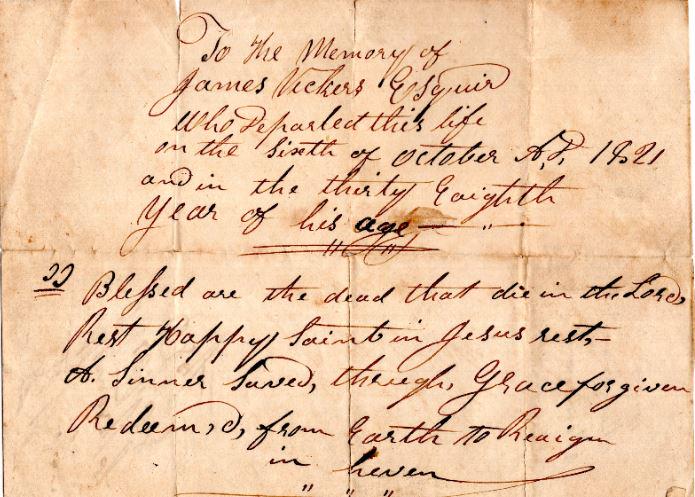 To the Memory of
James Vickers Esquir
Who Departed this life
on the Sixth of October A,D, 1821
and in the thirty Eaighth
Year of his age
" "
" Blessed are the dead that die in the Lord,
Rest Happy Saint in Jesus rest,
A. Sinner Saved, through, Grace forgiven
Redeem,d, from Earth to Reaign
in heven
" " "